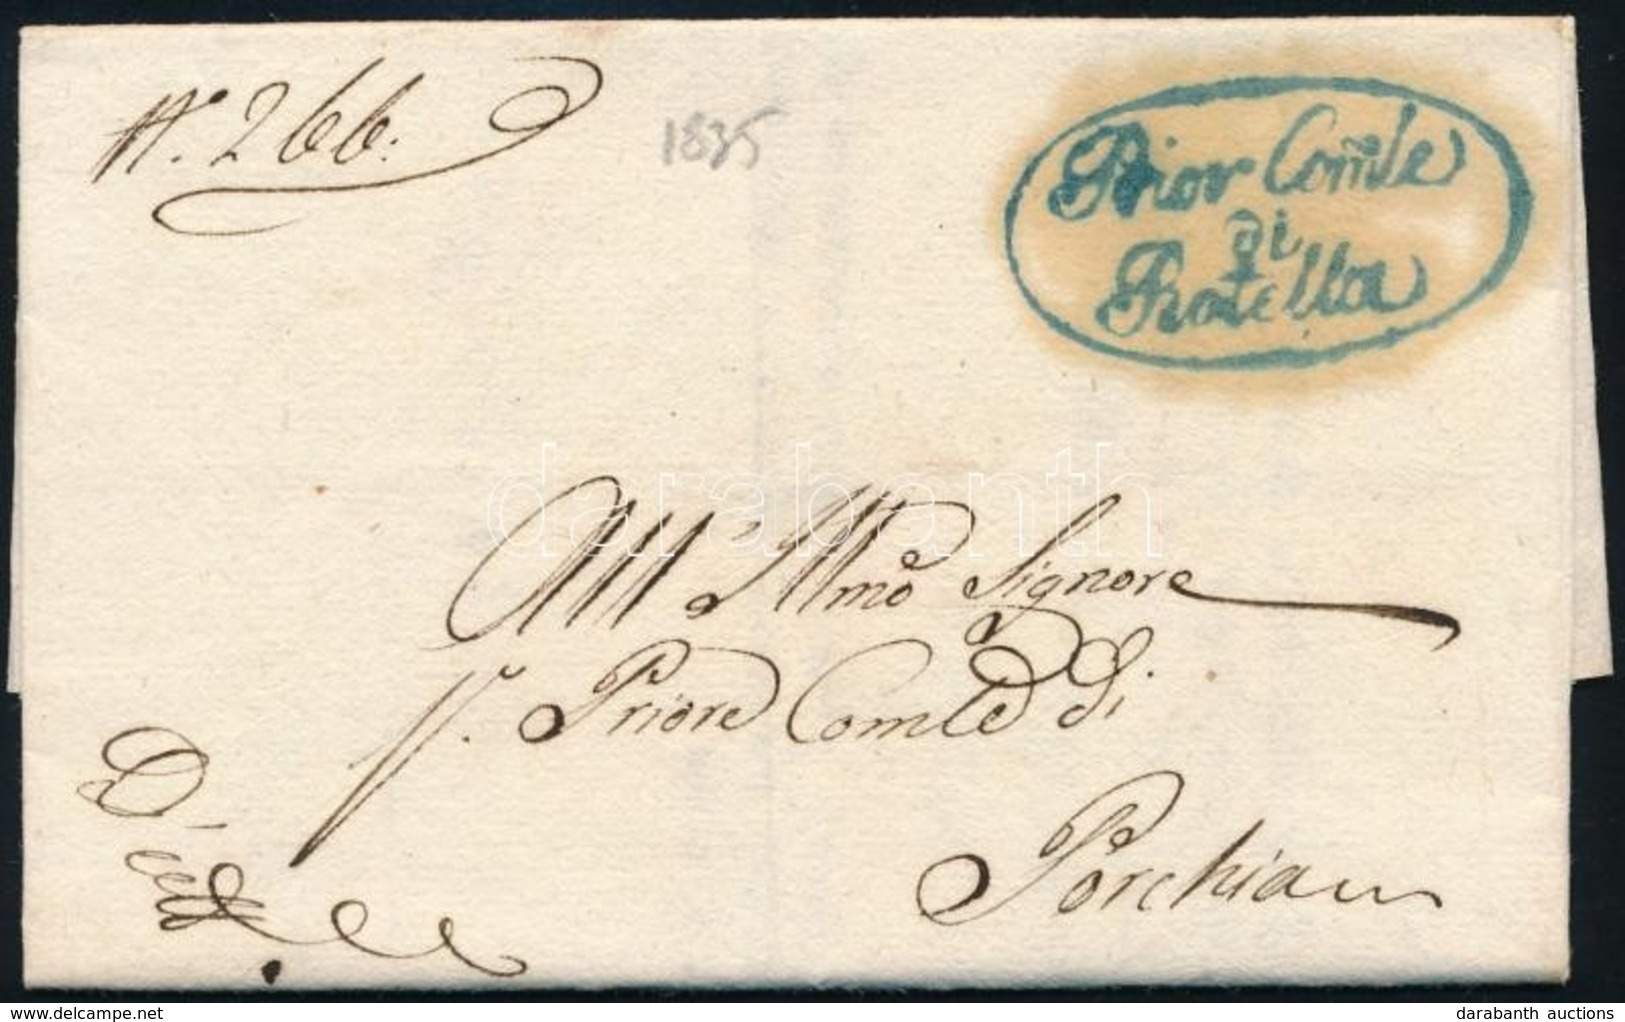 N. 266:
1835
Prior Comle
di
Fratella
darabanth
All' Illmo Signore
Sig. Priore Comle di
Porchia
D'
uffo
delcampe.net
darabanth auctions